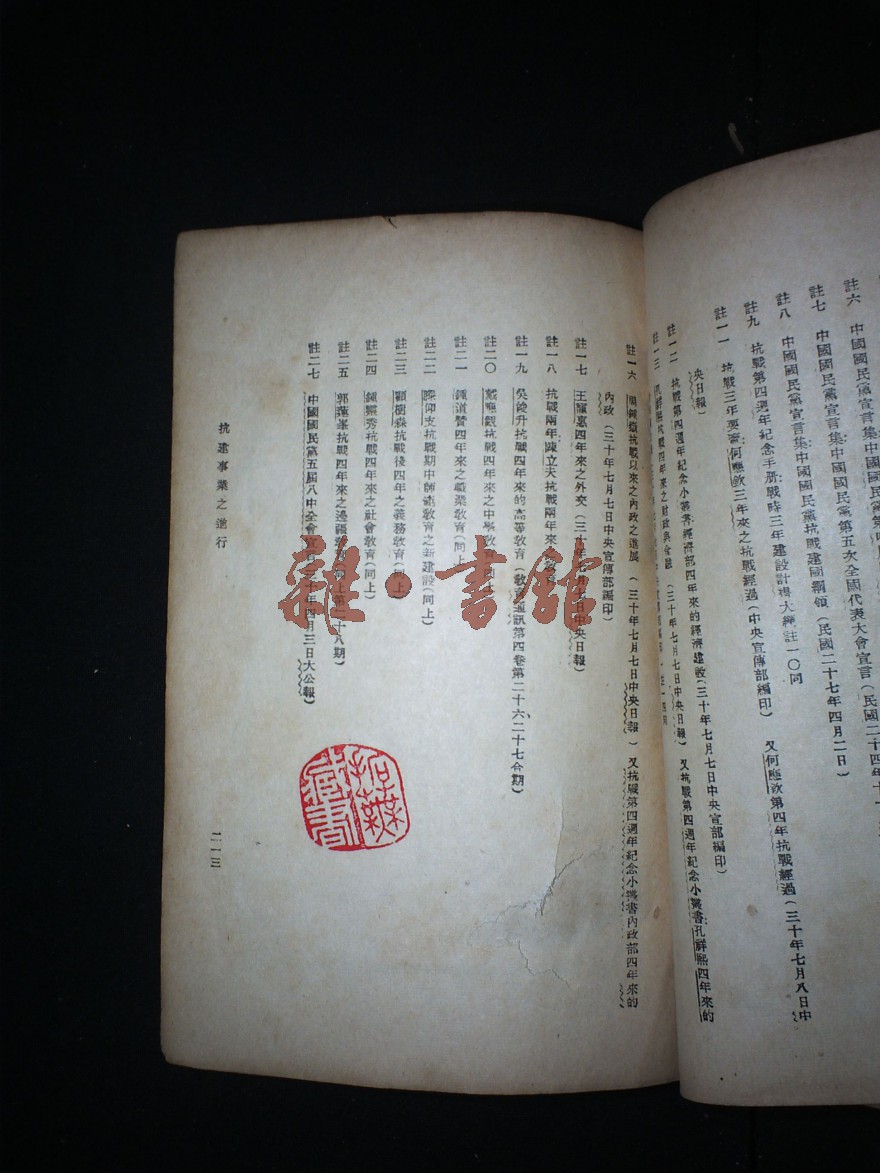 註六　中國國民黨宣言集中國國民黨第四
註七　中國國民黨宣言集中國國民黨第五次全國代表大會宣言(民國二十四年十一
註八　中國國民黨宣言集中國國民黨抗戰建國綱領(民國二十七年四月二日)
註九　抗戰第四週年紀念手册:戰時三年建設計 大綱註一〇同
註一一　抗戰三年要 :何應欽三年來之抗戰經過(中央宣傳部編印)　又何應欽第四年抗戰經過(三十年七月八日中
央日報)
註一二　抗戰第四週年紀念小叢書經濟部四年來的經濟建設(三十年七月七日中央宣部編印)
註一三　抗戰四年來之財政與金融(三十年七月七日中央日報)又抗戰第四週年紀念小叢書:孔祥熙四年來的
註一六　周鍾嶽抗戰以來之內政之進展　(三十年七月七日中央日報)又抗戰第四週年紀念小叢書內政部四年來的
內政(三十年七月七日中央宣傳部編印)
註一七　王寵惠四年來之外交(三十年七月七日中央日報)
註一八　抗戰兩年:陳立夫抗戰兩年來之教育
註一九　吳俊升抗戰四年來的高等教育(教育通訊第四卷第二十六、二十七合期)
註二〇　戴應觀抗戰四年來之中學教育(同上)
註二一　鍾道贊四年來之職業教育(同上)
註二二　滕仰支抗戰期中師範教育之新建設(同上)
註二三　顧樹森抗戰後四年之義務教育(同上)
註二四　鍾靈秀抗戰四年來之社會教育(同上)
註二五　郭蓮峯抗戰四年來之邊疆教育(同上第二十八期)
註二七　中國國民黨第五屆八中全會宣言(三十年四月三日大公報)
抗建事業之進行
二一三
雜·書館
藏書